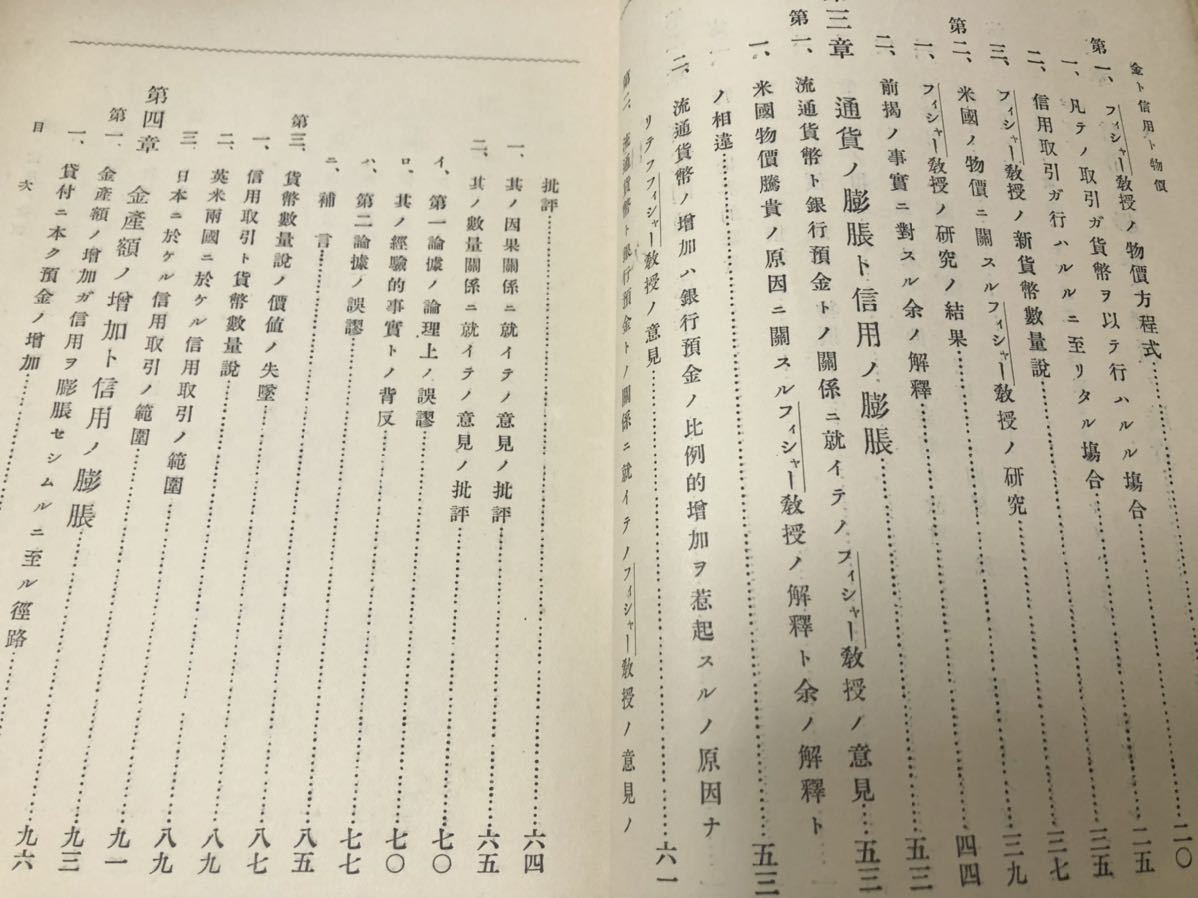 金ト信用ト物價
第一、フィシャー教授ノ物價方程式……二〇
一、凡テノ取引ガ貨幣ヲ以テ行ハルル塲合……二五
二、信用取引ガ行ハルルニ至リタル塲合……三五
三、フィシャー教授ノ新貨幣數量說……三七
第二、米國ノ物價ニ關スルフィシャー教授ノ研究……三九
一、フィシャー教授ノ研究ノ結果……四四
二、前揭ノ事實ニ對スル余ノ解釋……五三
第三章 通貨ノ膨脹ト信用ノ膨脹
第一、流通貨幣ト銀行預金トノ關係ニ就イテノフィシャー教授ノ意見……五三
一、米國物價騰貴ノ原因ニ關スルフィシャー教授ノ解釋ト余ノ解釋ト
ノ相違……五三
二、流通貨幣ノ增加ハ銀行預金ノ比例的增加ヲ惹起スルノ原因ナ
リテフフィシャー教授ノ意見……六一
第二、流通貨幣ト銀行預金トノ關係ニ就イテノフィシャー教授ノ意見ノ
批評……六四
一、其ノ因果關係ニ就イテノ意見ノ批評……六五
二、其ノ數量關係ニ就イテノ意見ノ批評……七〇
イ、第一論據ノ論理上ノ誤謬……七〇
ロ、其ノ經驗的事實トノ背反……七〇
ハ、第二論據ノ誤謬……七七
ニ、補言……八五
第三、貨幣數量說ノ價値ノ失墜……八七
一、信用取引ト貨幣數量說……八九
二、英米兩國ニ於ケル信用取引ノ範圍……八九
三、日本ニ於ケル信用取引ノ範圍……九一
第四章 金產額ノ增加ト信用ノ膨脹
第一、金產額ノ增加ガ信用ヲ膨脹セシムルニ至ル徑路……九三
一、貸付ニ本ク預金ノ增加……九六
目次